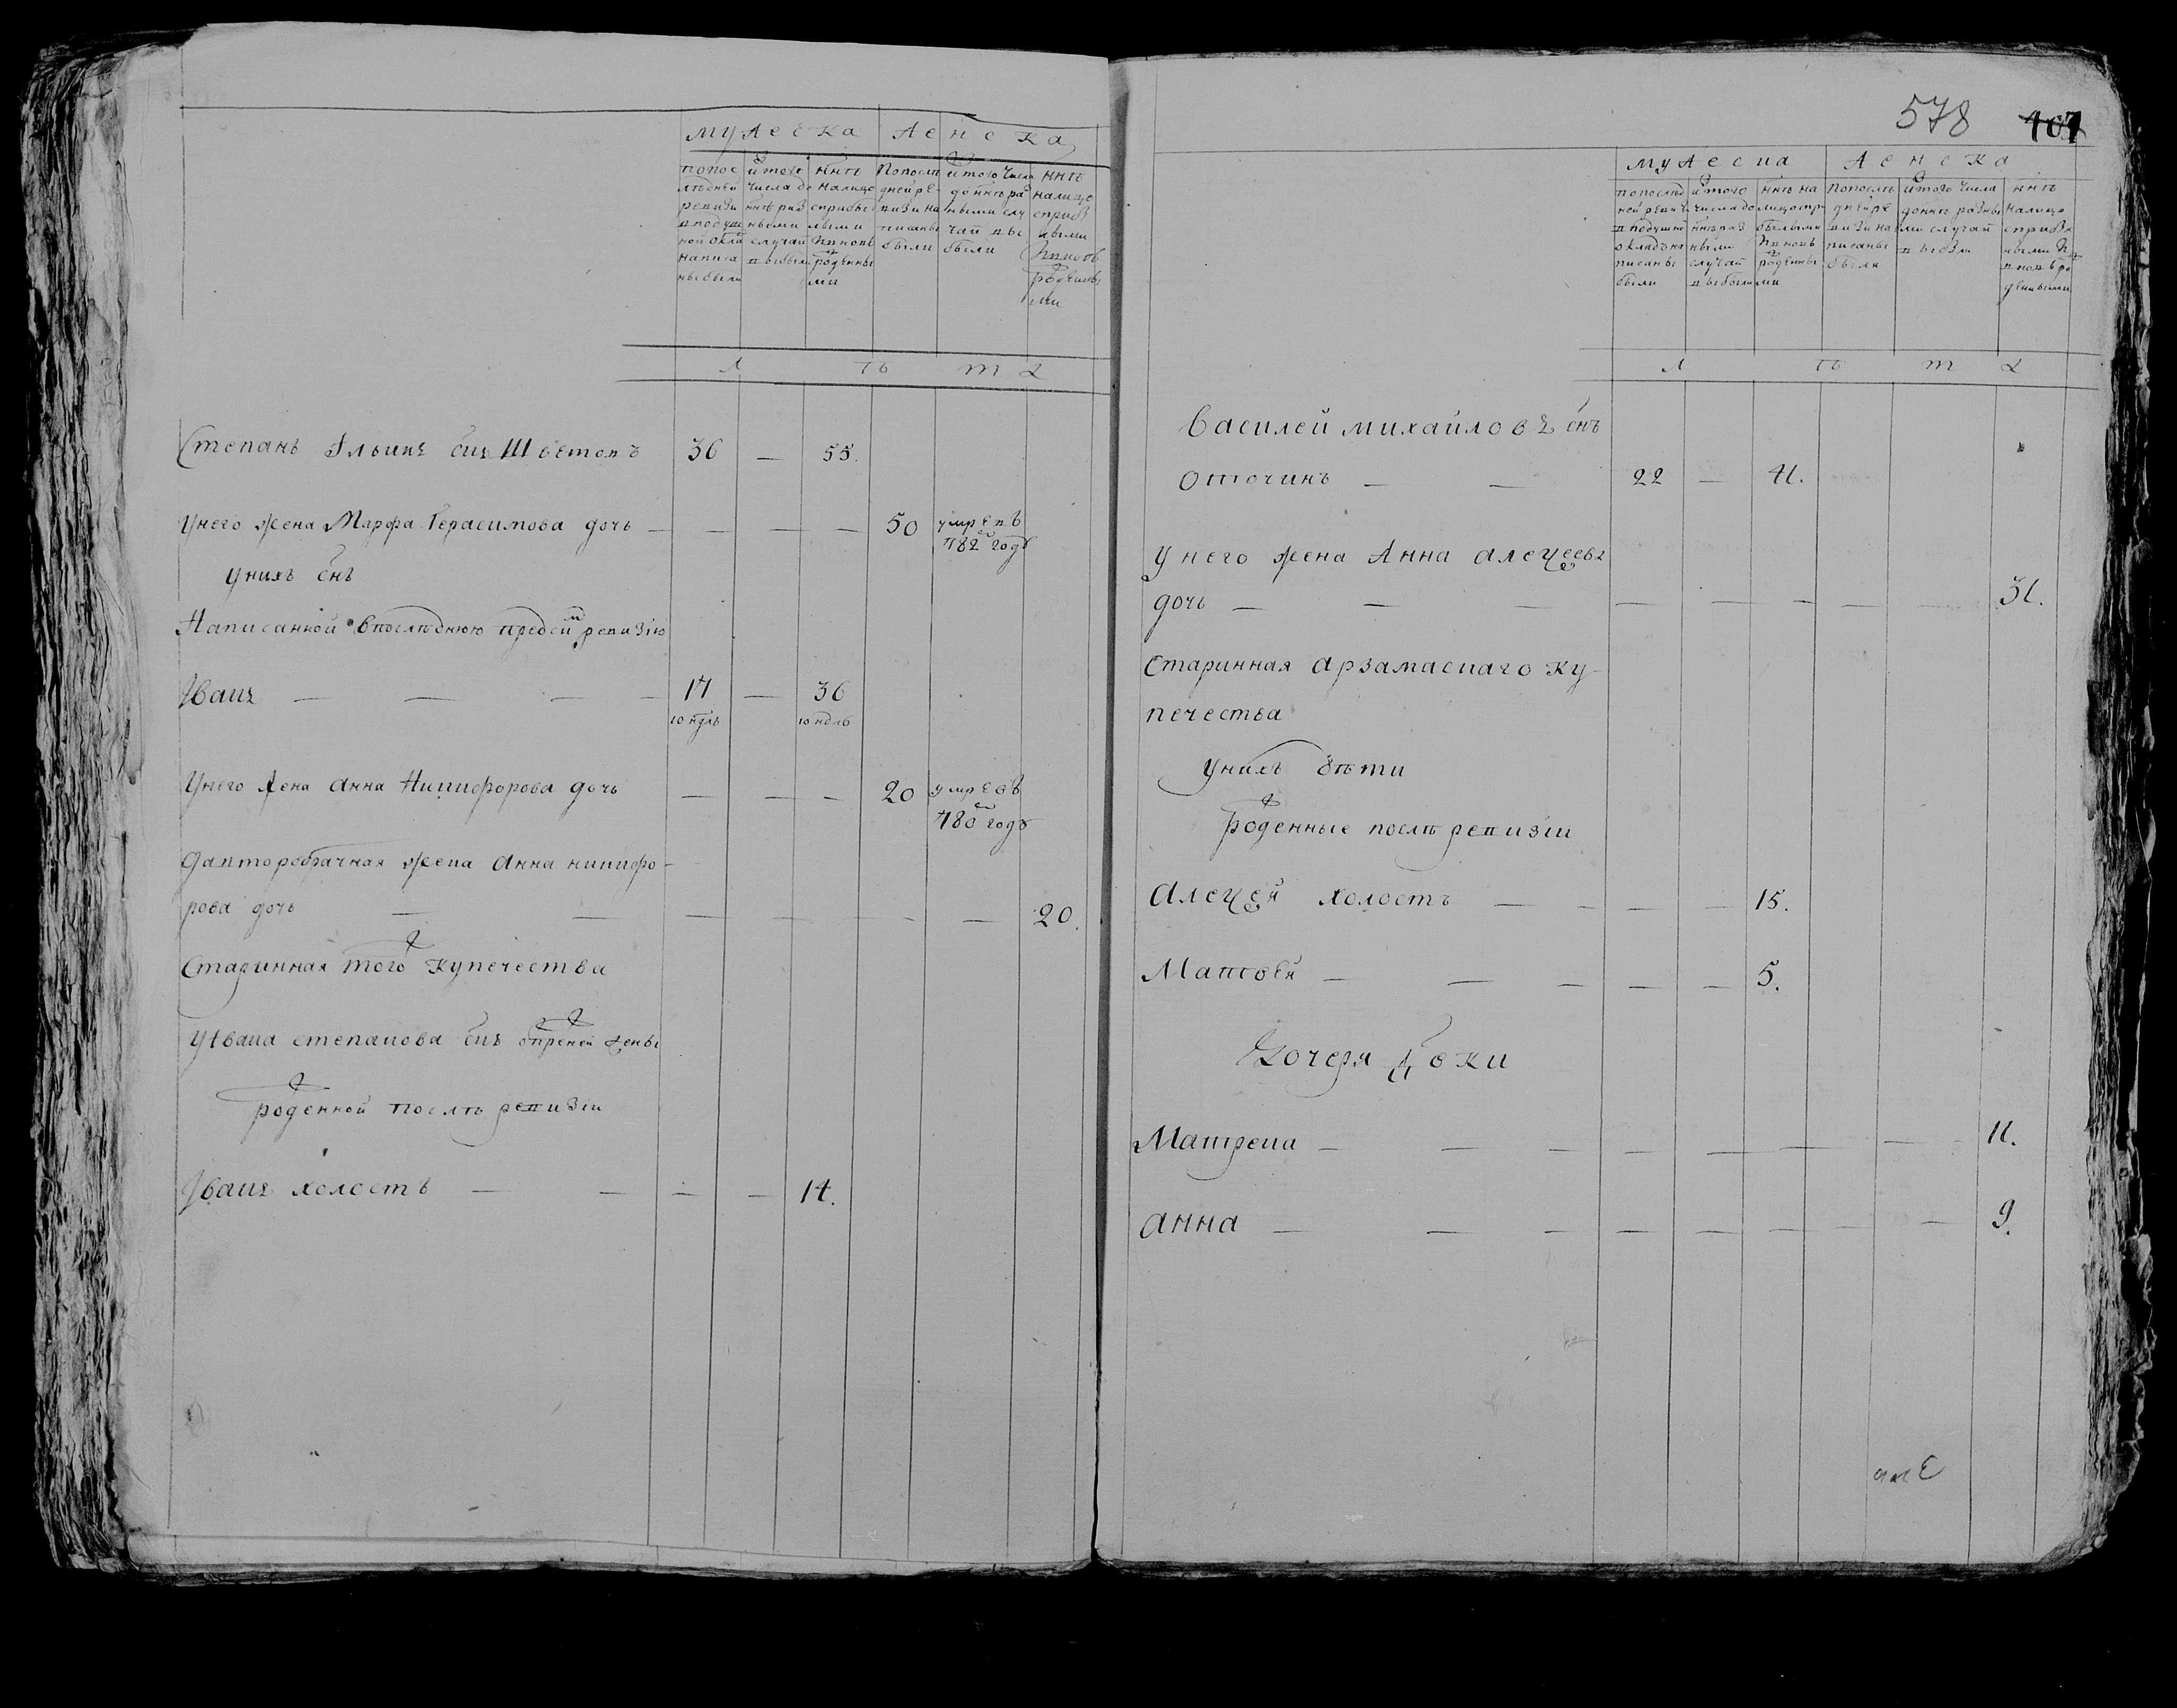 мужеска женска
попос лѣдней ревизи вподуш ной окла написа ны были
итого числа до ннѣ раз ными случай выбыли
ннѣ налицо сприбы лыми ивновь рожденны ми
Попослѣ дней ре визи на писаны были
итого числа до ннѣ раз ными слу чай вы были
ннѣ налицо сприб лыми ивновь рожденны ми
л ѣ т а
Степанъ Ильинъ снъ Шестовъ 36 — 55.
Унего жена Марфа Герасимова дочь — — — — 50 умре въ
782 году
унихъ снъ
Написанной впослѣднюю предсим ревизiю
Иванъ — — — — 17 — 36
10 ндль 10 ндль
Унего жена Анна Никифорова дочь — — — 20 умре въ
780 году
Да второбрачная жена Анна никифо-
рова дочь — — — — — — 20.
Старинная того купечества
У Ивана степанова снъ отпрежней жены
рожденной послѣ ревизiи
Иванъ холостъ — — — — 14.
578 107
мужеска женска
попослѣд ней ревизи вподушно окладъ на писаны были
итого числа до ннѣ раз ными случай выбыли
ннѣ на лицо спри былыми ивновь рожденны ми
Попослѣ дней ре визи на писаны были
итого числа до ннѣ разны ми случай выбыли
ннѣ налицо сприб лыми и вновь ро жденными
л ѣ т а
Василей михайловъ снъ
Оточинъ — — 22 — 41.
У него жена Анна алеѯеева
дочь — — — — — — — — 31.
Старинная арзамаскаго ку-
печества
унихъ дѣти
рожденные послѣ ревизiи
Алеѯей холостъ — — — — 15.
Матвей — — — — — 5.
Дочери дѣвки
Матрена — — — — — — — 11.
Анна — — — — — — — — 9.